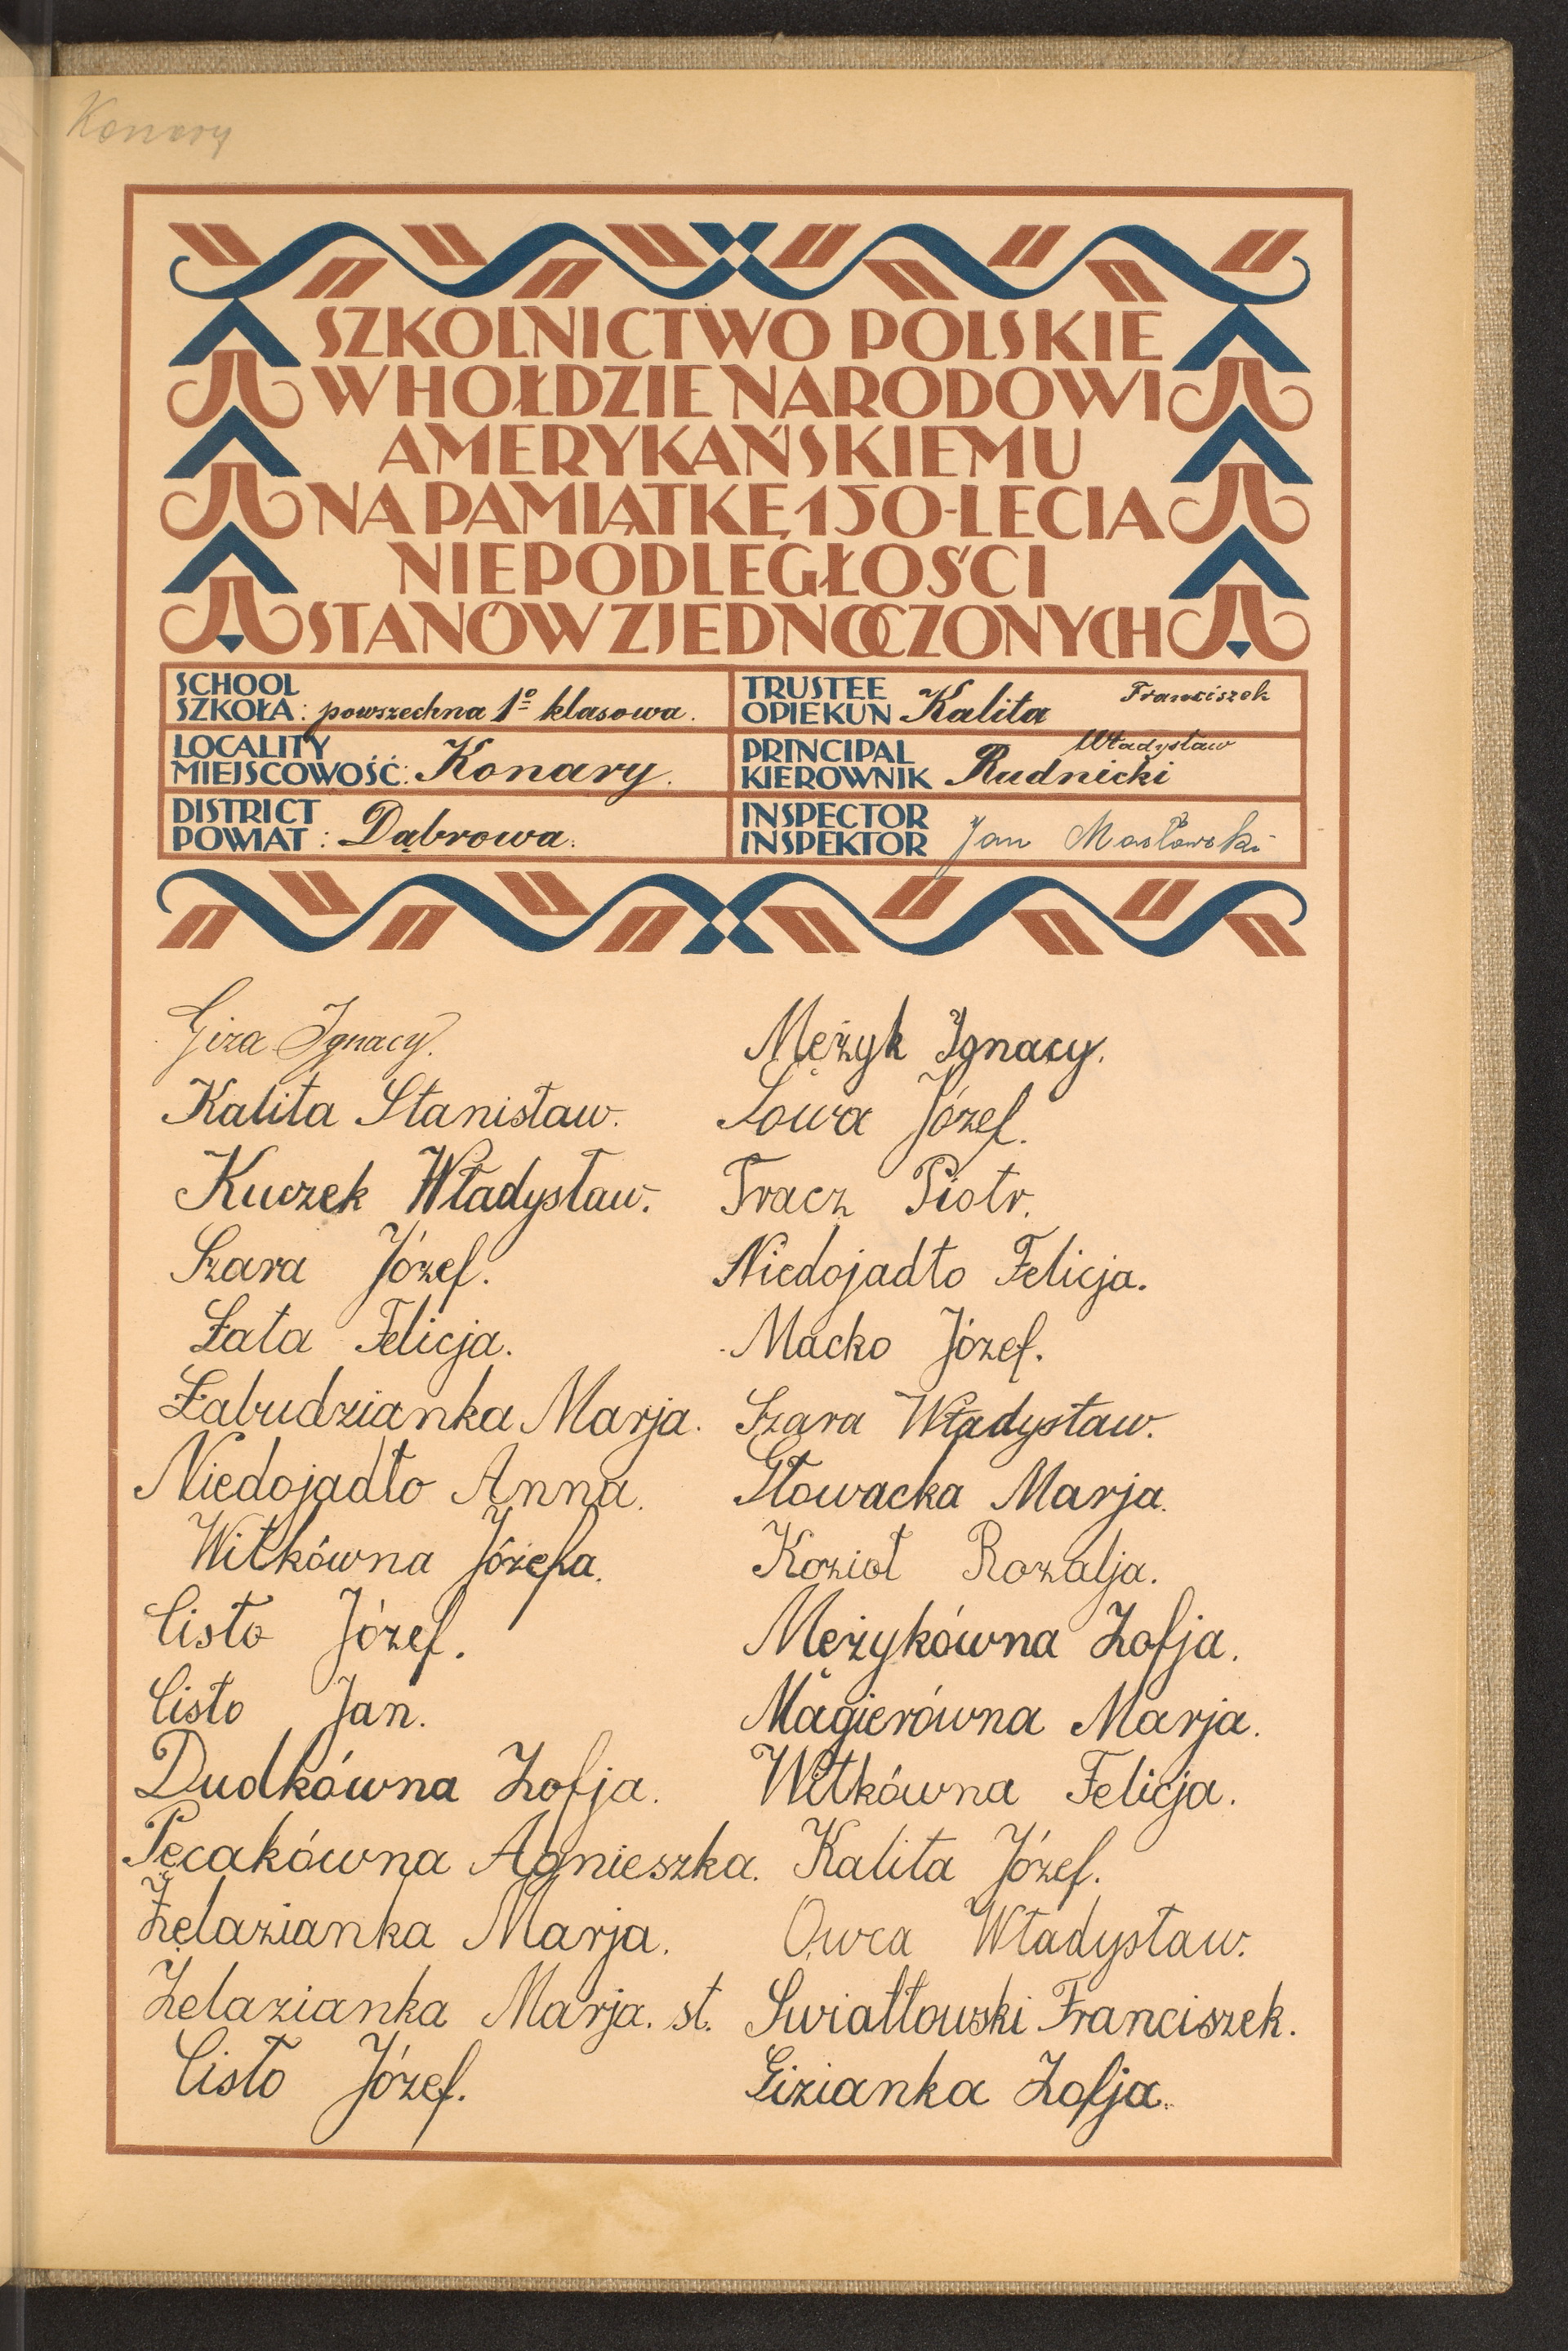 Konary
SZKOLNICTWO POLSKIE
W HOŁDZIE NARODOWI
AMERYKAŃSKIEMU
NA PAMIĄTKĘ 150-LECIA
NIEPODLEGŁOŚCI
STANÓW ZJEDNOCZONYCH
SCHOOL
SZKOŁA: powszechna 1º klasowa.
TRUSTEE
OPIEKUN Kalita Franciszek
LOCALITY
MIEJSCOWOŚĆ: Konary.
PRINCIPAL
KIEROWNIK Rudnicki Władysław
DISTRICT
POWIAT: Dąbrowa.
INSPECTOR
INSPEKTOR Jan Masławski
Giza Ignacy.
Kalita Stanisław.
Kuczek Władysław.
Szara Józef.
Łata Felicja.
Łabudzianka Marja.
Niedojadło Anna.
Witkówna Józefa.
Cisło Józef.
Cisło Jan.
Dudkówna Zofja.
Pęcakówna Agnieszka.
Żelazianka Marja.
Żelazianka Marja. st.
Cisło Józef.
Mężyk Ignacy.
Sowa Józef.
Tracz Piotr.
Niedojadło Felicja.
Maćko Józef.
Szara Władysław.
Głowacka Marja.
Kozioł Rozalja.
Mężykówna Zofja.
Magierówna Marja.
Witkówna Felicja.
Kalita Józef.
Owca Władysław.
Swiałtowski Franciszek.
Gizianka Zofja.